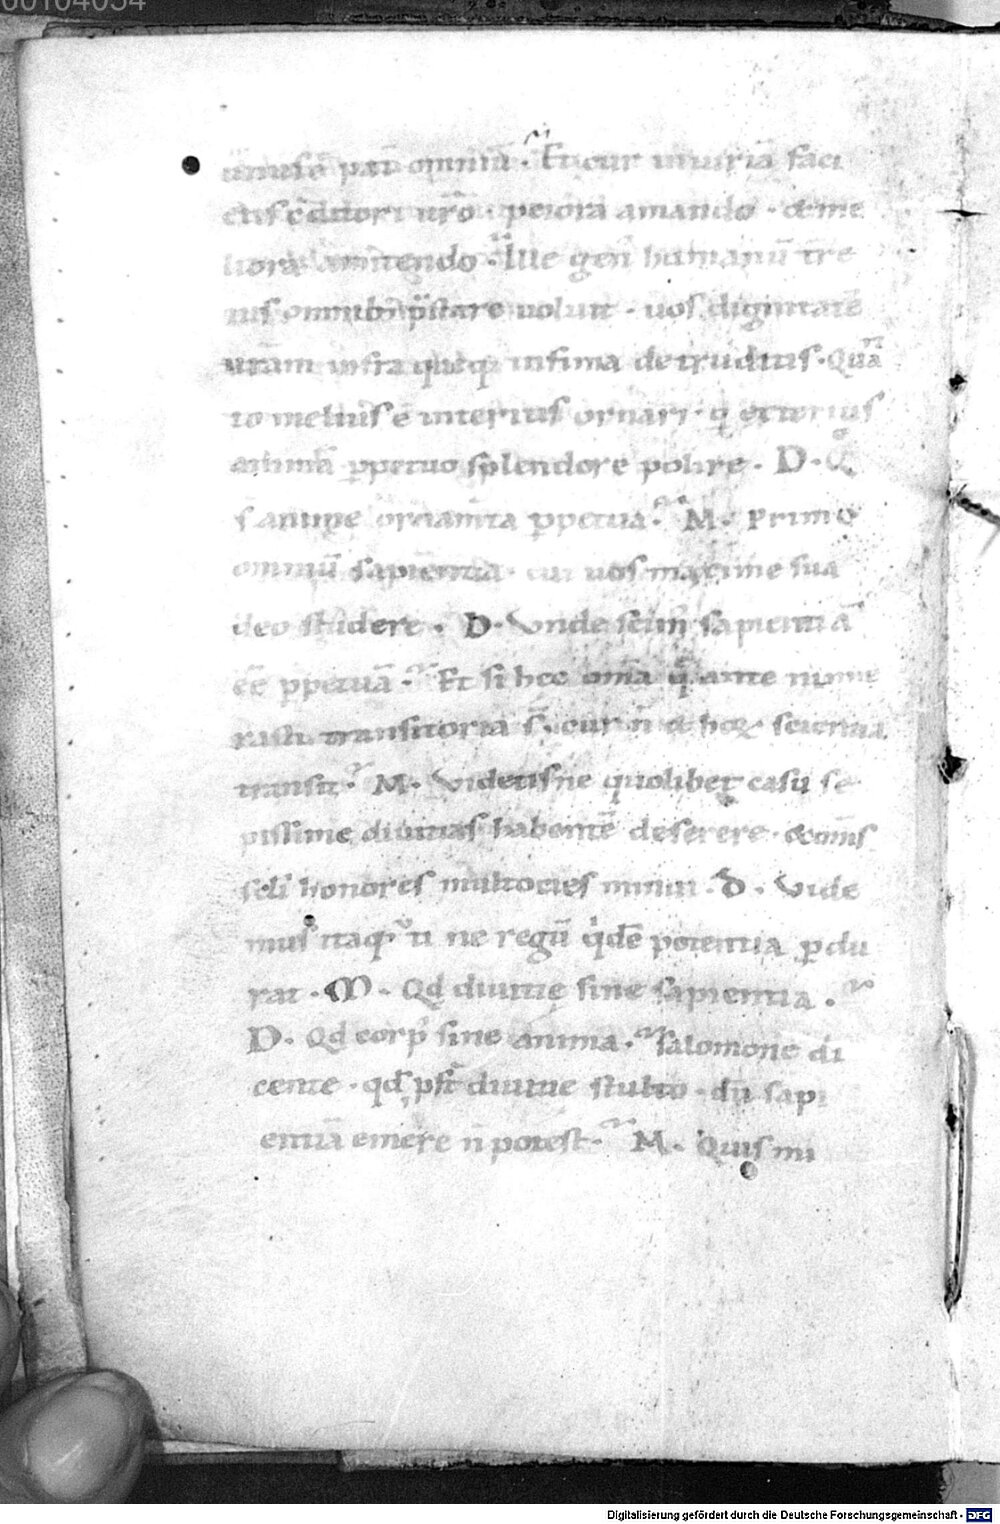 00104054
uniusē patē omniū. Et cur iniuriā faci
etis c̄ditori ur̄o · peiora amando · & me
liora amittendo. Ille gen' humanū tre
nis omnib; p̄stare uoluit · uos dignitatē
ur̄am infra quęq; infima detruditis. Quā
to melius ē interius ornari · q̄ exterius
animā ꝑpetuo splendore polire. D. Q
s̄ animę ornam̄ta ꝑpetua. M. Primo
omniū sapientia · cui uos maxime sua
deo studere. D. Vnde scim' sapientiā
eē ꝑpetuā. Et si hec om̄a q̄ ante nume
rasti transitoria s̄, cur n̄ & hęc scientia
transit. M. Videtisne quolibet casu sę
pissime diuitias habentē deserere · & om̄s
sc̄li honores multocies minui. D. Vide
mus itaq; ut ne regū q̇dē potentia ꝑdu
rat. M. Qd diuitię sine sapientia.
D. Qd corp' sine anima. Salomone di
cente · qd ꝓst̄ diuitie stulto · dū sapi
entiā emere n̄ potest. M. Quis mi
Digitalisierung gefördert durch die Deutsche Forschungsgemeinschaft - DFG